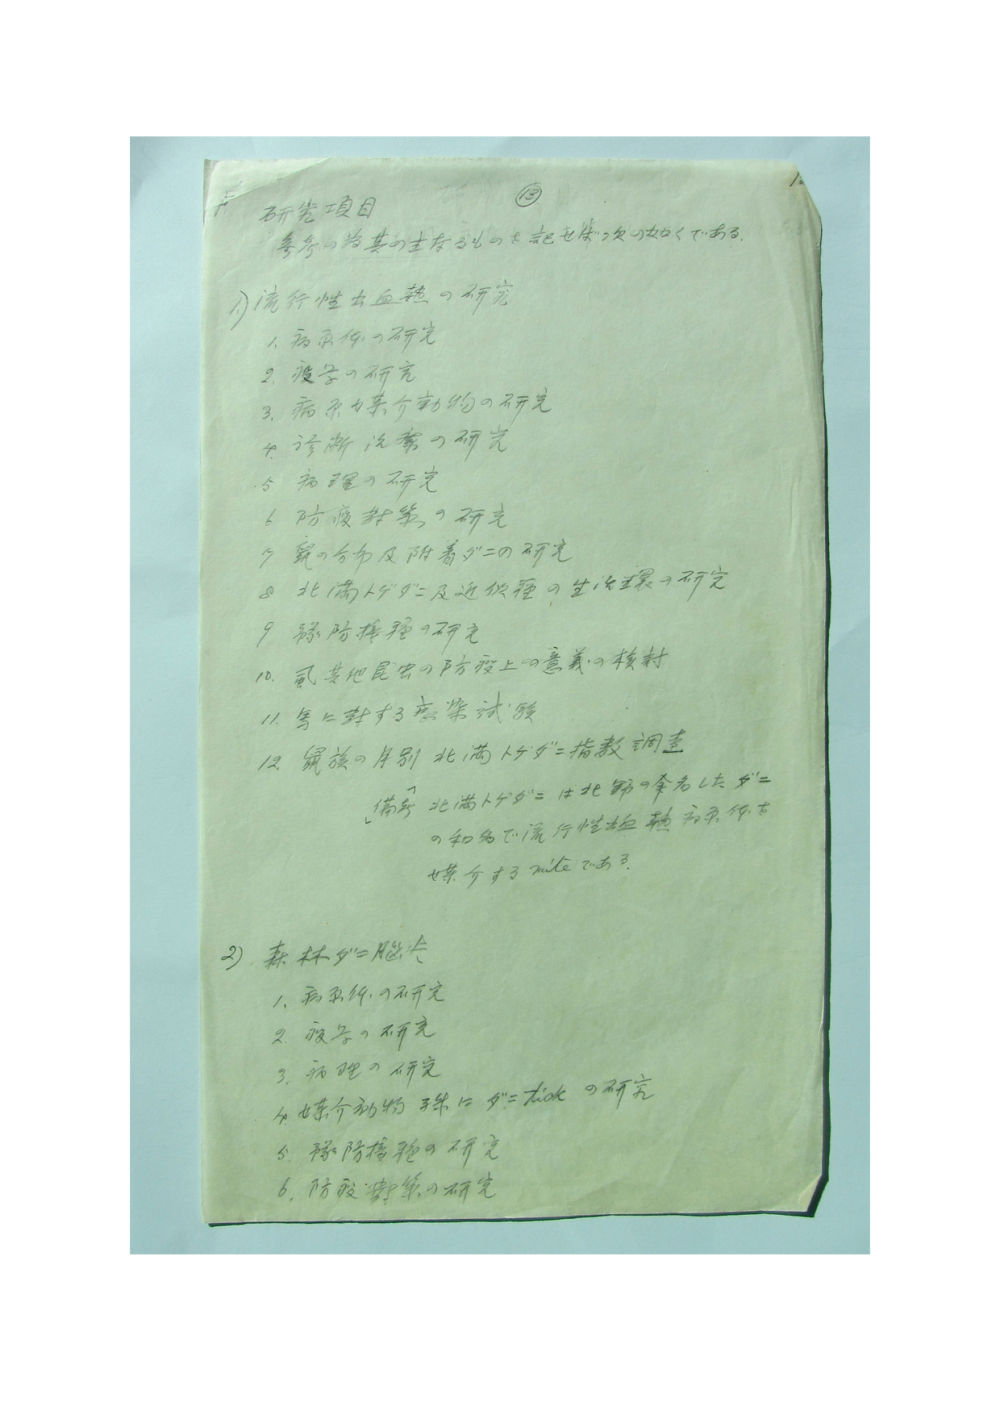 ⑬
研究項目
参考の為其の主なるものを記せば次の如くである.
1) 流行性出血熱の研究
1. 病原体の研究
2. 疫学の研究
3. 病原力媒介動物の研究
4. 診断治療の研究
5 病理の研究
6 防疫対策の研究
7 鼠の分布及附着ダニの研究
8 北満トゲダニ及近似種の生活環の研究
9 予防接種の研究
10. 虱其他昆虫の防疫上の意義の検討
11. 馬に対する感染試験
12. 鼠族の月別北満トゲダニ指数調査
「備考」北満トゲダニは北野の命名したダニ
の和名で流行性出血熱病原体を
媒介するmiteである.
2) 森林ダニ脳炎
1. 病原体の研究
2. 疫学の研究
3. 病理の研究
4 媒介動物殊にダニtickの研究
5. 予防接種の研究
6. 防疫対策の研究